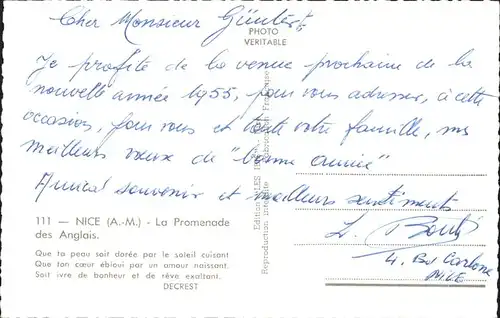 Cher Monsieur Günter
PHOTO
VERITABLE
Je profite de la venue prochaine de la
nouvelle année 1955, pour vous adresser, à cette
occasion, pour vous et toute votre famille, mes
meilleurs vœux de "bonne année"
Amical souvenir et meilleurs sentiments
111 — NICE (A.-M.) - La Promenade
des Anglais.
Que ta peau soit dorée par le soleil cuisant
Que ton cœur ébloui par un amour naissant.
Soit ivre de bonheur et de rêve exaltant.
DECREST
L.
4. Bd Carlone
NICE
Editions
Reproduction interdite